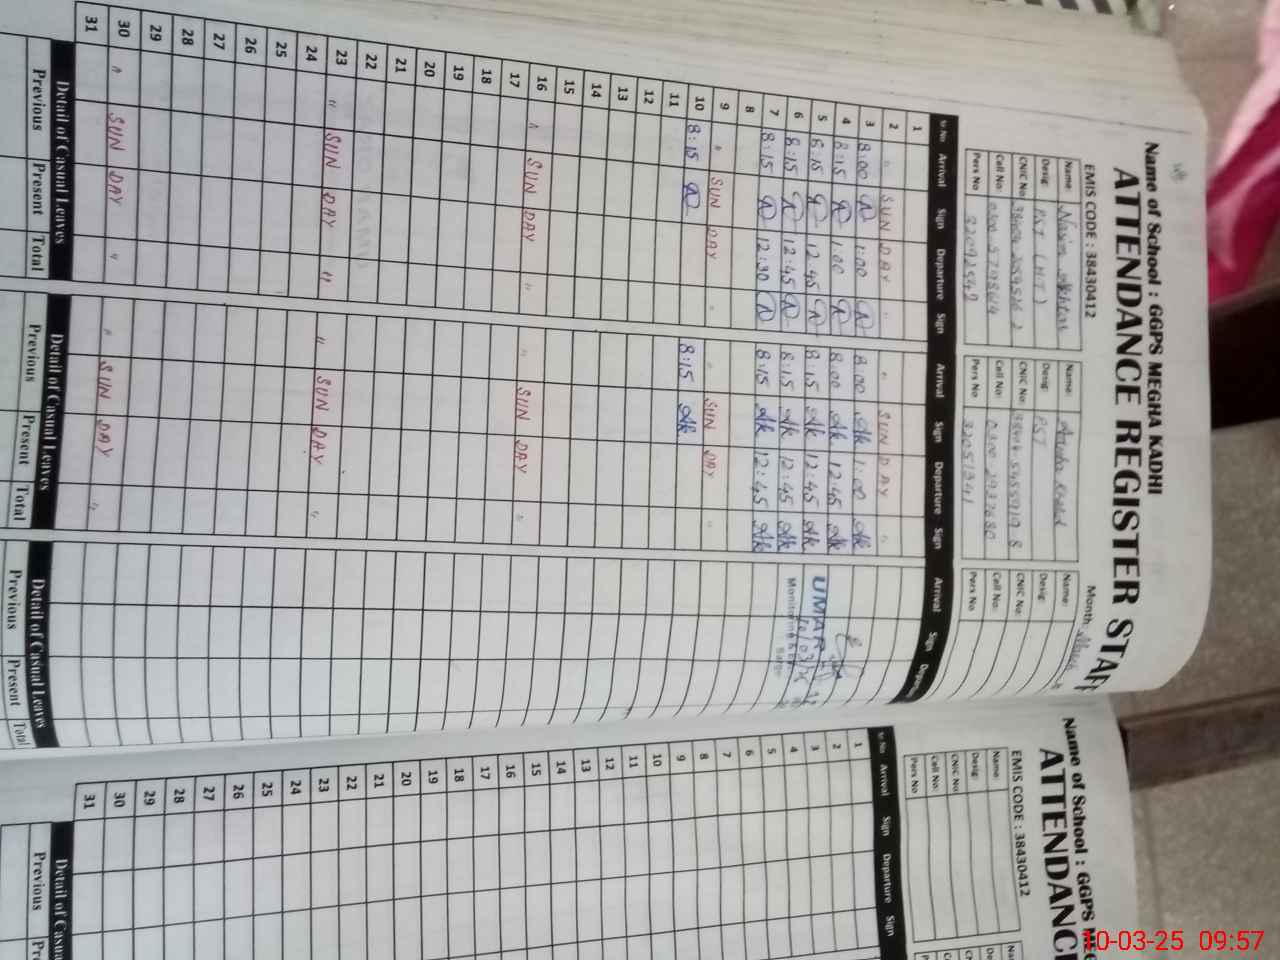 Name of School : GGPS MEGHA KADHI
ATTENDANCE REGISTER STAFF
EMIS CODE : 38430412
Month: March
Name: Nasim Akhtar
Desig: PST (H.T)
CNIC No:
Cell No:
Pers No
Name:
Desig: PST
CNIC No:
Cell No:
Pers No
Name:
Desig:
CNIC No:
Cell No:
Pers No
Sr No Arrival Sign Departure Sign Arrival Sign Departure Sign Arrival Sign
1
2 " SUN DAY " " SUN DAY "
3 8:00 1:00 8:00 Ak 1:00 Ak
4 8:15 1:00 8:00 Ak 12:45 Ak
5 8:15 12:45 8:15 Ak 12:45 Ak
6 8:15 12:45 8:15 Ak 12:45 Ak
7 8:15 12:30 8:15 Ak 12:45 Ak
UMAR
10/03/25
8
9 " SUN DAY " " SUN DAY "
10 8:15 8:15 Ak
11
12
13
14
15
16 " SUN DAY " " SUN DAY "
17
18
19
20
21
22
23 " SUN DAY " " SUN DAY "
24
25
26
27
28
29
30 " SUN DAY " " SUN DAY "
31
Detail of Casual Leaves Detail of Casual Leaves Detail of Casual Leaves
Previous Present Total Previous Present Total Previous Present Total
Name of School : GGPS MEG
ATTENDANC
EMIS CODE : 38430412
Name:
Desig:
CNIC No:
Cell No:
Pers No
Sr No Arrival Sign Departure Sign
1
2
3
4
5
6
7
8
9
10
11
12
13
14
15
16
17
18
19
20
21
22
23
24
25
26
27
28
29
30
31
Detail of Casual
Previous
10-03-25 09:57